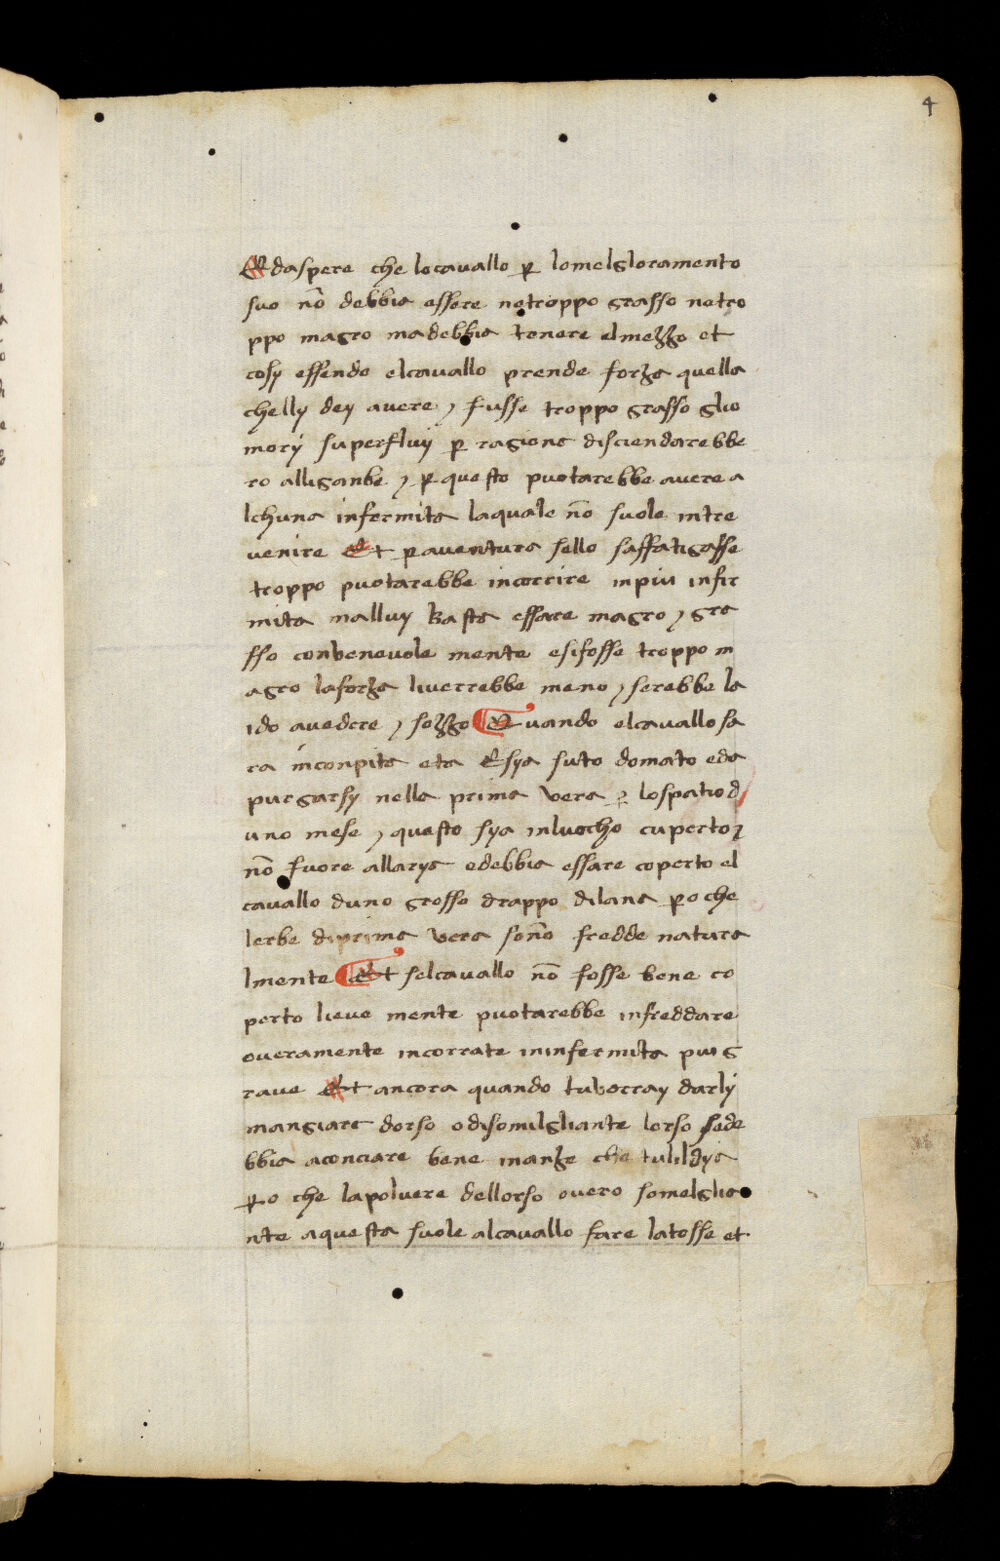 4
Edaspere che locavallo ꝑ lomelgloramento
suo nō debbia essere netroppo grasso netro
ppo magro madebbia tenere elmezzo et
cosy essendo elcavallo prende forza quella
chelly dey avere ⁊ fusse troppo grasso gluo
mory superfluij ꝑ ragione disciendarebbe
ro alliganbe ⁊ ꝑ questo puotarebbe avere a
lchuna infermita laquale nō suole intre
venire Et ꝑaventura sello saffatigasse
troppo puotarebbe incorrire inpiu infir
mita malluy basta essare magro ⁊ gra
sso conbenevole mente esifosse troppo m
agro laforza liverrebbe meno ⁊ serebbe la
ido avedere ⁊ sozzo Quando elcavallo sa
ra inconpita eta Esya suto domato eda
purgarsy nella prima vera ꝑ lospatio d
uno mese ⁊ questo sya inluocho cuperto ⁊
nō fuore allarya edebbia essare coperto el
cavallo duno grosso drappo dilana ꝑo che
lerbe diprima vera sonō fredde natura
lmente Et selcavallo nō fosse bene co
perto lieve mente puotarebbe infreddare
overamente incorrate ininfermita piu g
rave Et ancora quando tuvorray darly
mangiare dorso odisomilgliante lorso sede
bbia aconciare bene inanze che tulildya
ꝑo che lapolvere dellorso overo somelglia
nte aquesta suole alcavallo fare latosse et